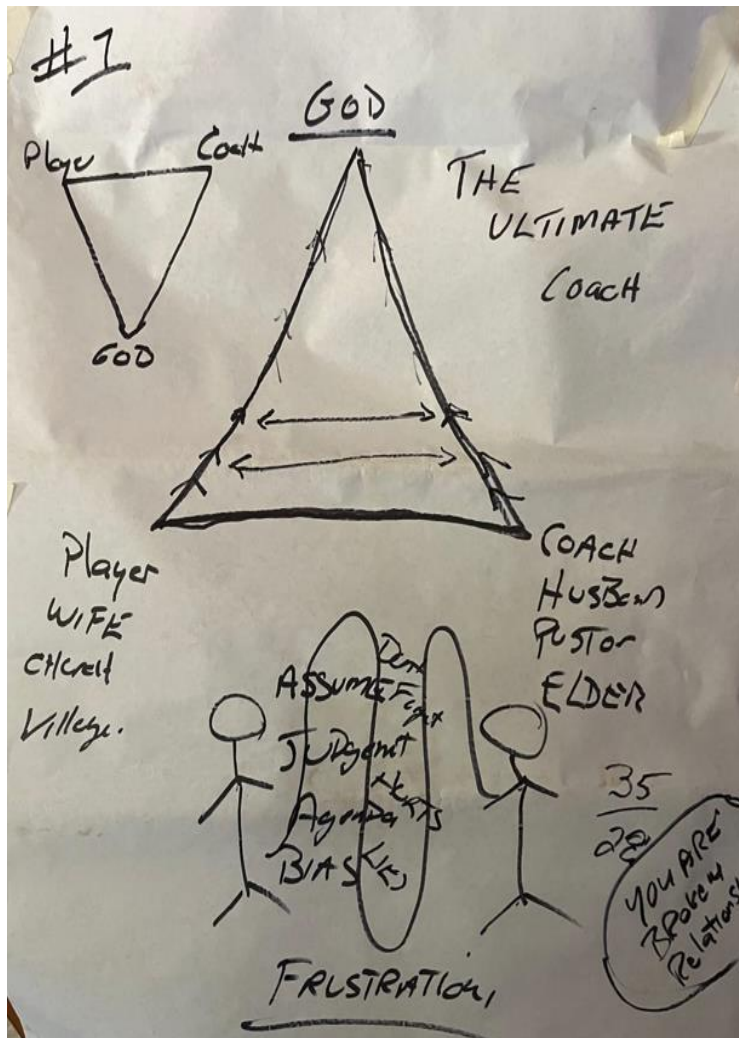 #1
GOD
Player
Coach
GOD
THE
ULTIMATE
COACH
Player
WIFE
CHurch
Village.
COACH
HUSBan
PUSTOr
ELDER
ASSUME
JUDgemt
AgenDa
BIAS
HurTS
LIES
35
28
YOU ARE
BROKEN
Relations
FRUSTRATION,